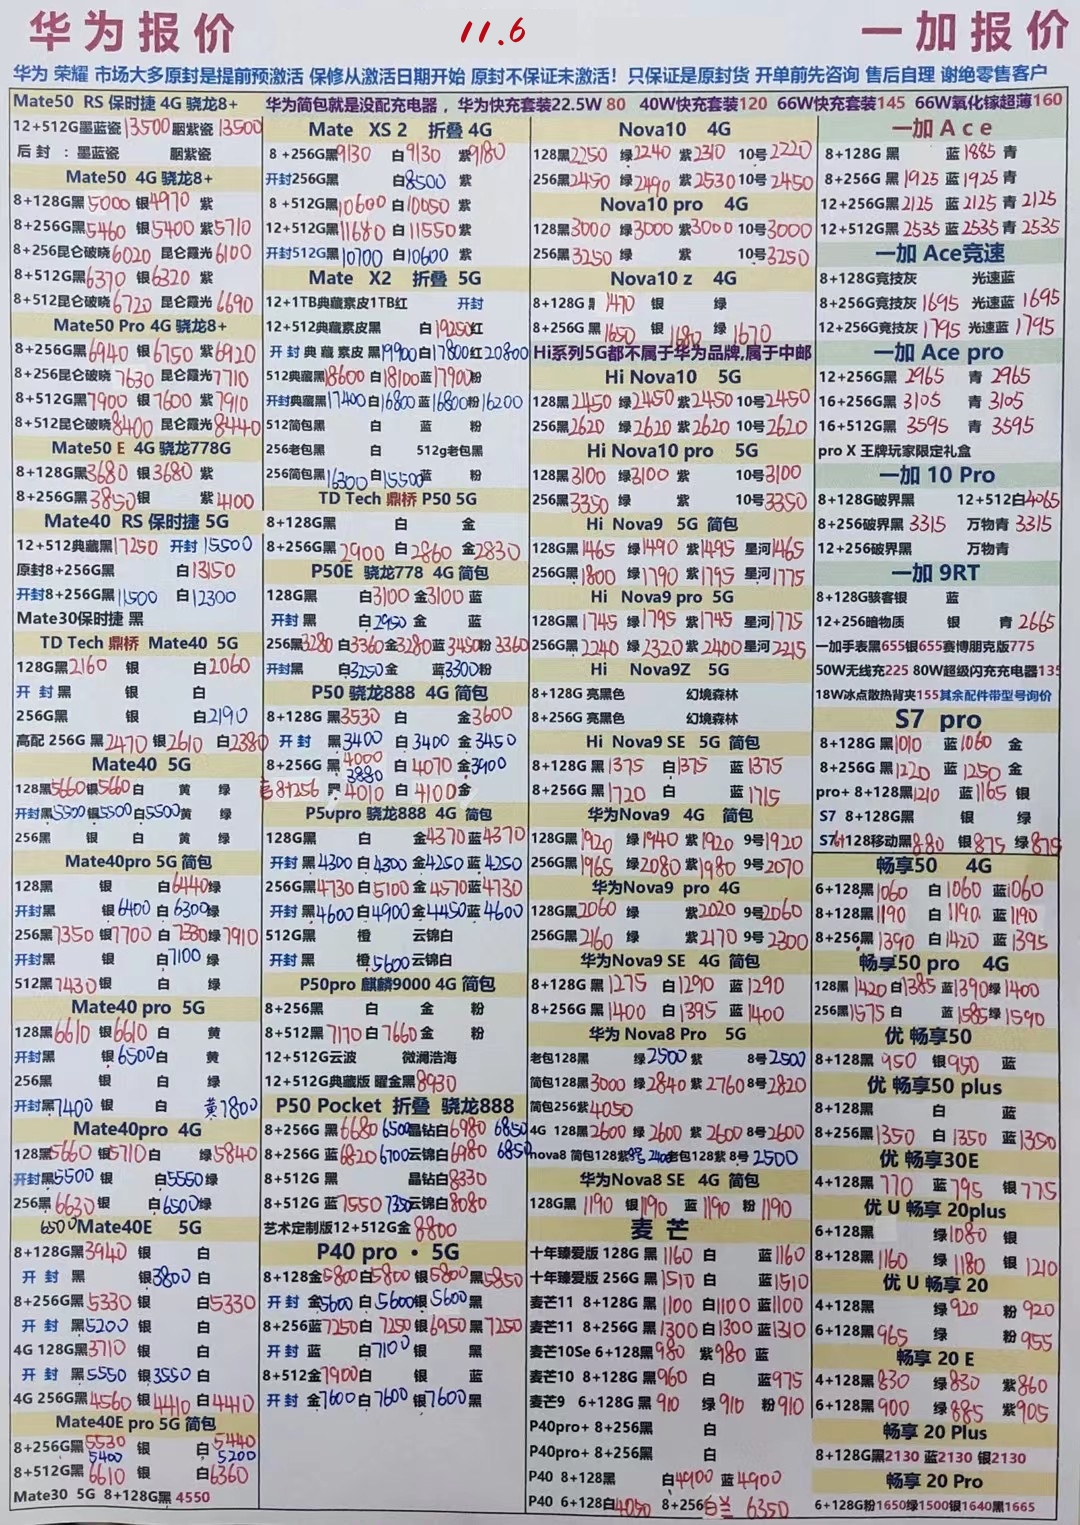 华为报价
11.6
一加报价
华为 荣耀 市场大多原封是提前预激活 保修从激活日期开始 原封不保证未激活！只保证是原封货 开单前先咨询 售后自理 谢绝零售客户
华为简包就是没配充电器，华为快充套装22.5W 80 40W快充套装120 66W快充套装145 66W氧化镓超薄160
Mate50 RS 保时捷 4G 骁龙8+
12+512G墨蓝瓷13500胭紫瓷13500
后 封 ：墨蓝瓷 胭紫瓷
Mate50 4G 骁龙8+
8+128G黑5000 银4970 紫
8+256G黑5460 银5400 紫5710
8+256昆仑破晓6020 昆仑霞光6100
8+512G黑6370 银6320 紫
8+512昆仑破晓6720 昆仑霞光6690
Mate50 Pro 4G 骁龙8+
8+256G黑6940 银6750 紫6920
8+256昆仑破晓7630 昆仑霞光7710
8+512G黑7900 银7600 紫7910
8+512昆仑破晓8400 昆仑霞光8440
Mate50 E 4G 骁龙778G
8+128G黑3680 银3680 紫
8+256G黑3850银 紫4100
Mate40 RS 保时捷 5G
12+512典藏黑17250 开封15500
原封8+256G黑 白13150
开封8+256G黑11500 白12300
Mate30保时捷 黑
TD Tech 鼎桥 Mate40 5G
128G黑2160 银 白2060
开 封 黑 银 白
256G黑 银 白2190
高配 256G 黑2470 银2610 白2380
Mate40 5G
128黑5660银5660白 黄 绿
开封黑5500银5500白5500黄 绿
256黑 银 白 黄 绿
Mate40pro 5G 简包
128黑 银 白6440绿
开封黑 银6400 白6300绿
256黑7350 银7700 白7380绿7910
开封黑 银 白7100 绿
512黑7430银 白 绿
Mate40 pro 5G
128黑6610 银6610 白 黄
开封黑 银6500白 黄
256黑 银 白 绿
开封黑7400 银 白 黄7800
Mate40pro 4G
128黑5660 银5710白 绿5840
开封黑5500银 白5550绿
256黑6630银 白6500绿
6500
Mate40E 5G
8+128G黑3940 银 白
开 封 黑 银3800白
8+256G黑5330 银 白5330
开 封 黑5200 银 白
4G 128G黑3710 银 白
开 封 黑5550 银3550白
4G 256G黑4560 银4410 白4410
Mate40E pro 5G 简包
8+256G黑5530 银 白5440
5400 5200
8+512G黑6610 银 白6360
Mate30 5G 8+128G黑 4550
Mate XS 2 折叠 4G
8 +256G黑9130 白9130 紫9180
开封256G黑 白8500 紫
8 +512G黑10600 白10050 紫
12+512G黑11680 白11550紫
开封512G黑10700 白10600紫
Mate X2 折叠 5G
12+1TB典藏素皮1TB红 开封
12+512典藏素皮黑 白19250红
开 封 典 藏 素皮 黑19900白17800红20800
512典藏黑18600 白18100蓝17900粉
开封典藏黑17400白16800蓝16800粉16200
512简包黑 白 蓝 粉
256老包黑 白 512g老包黑
256简包黑16300白15500蓝 粉
TD Tech 鼎桥 P50 5G
8+128G黑 白 金
8+256G黑2900 白2860 金2830
P50E 骁龙778 4G 简包
128G黑 白3100 金3100 蓝
开封 黑 白2950 金 蓝
256黑3280白3360金3280蓝3450粉3360
开封黑 白3250金 蓝3300粉
P50 骁龙888 4G 简包
8+128G 黑3530 白 金3600
开 封 黑3400 白3400 金3450
8+256G 黑4000 白4070 金3900
3880
8+256 黑4010 白4100金
P50pro 骁龙888 4G 简包
128G黑 白 金4370蓝4370
开封 黑4300白4300 金4250蓝4250
256G黑4730白5100 金4570蓝4730
开封 黑4600白4900 金4450蓝4600
512G黑 橙 云锦白
开封 黑 橙5600云锦白
P50pro 麒麟9000 4G 简包
8+256黑 白 金 粉
8+512黑7170 白7660金 粉
12+512G云波 微澜浩海
12+512G典藏版 曜金黑8930
P50 Pocket 折叠 骁龙888
8+256G 黑6680 6500晶钻白6980 6850
8+256G 蓝6820 6700云锦白6980 6850
8+512G 黑 晶钻白8330
8+512G 蓝7550 7350云锦白8080
艺术定制版12+512G金8800
P40 pro · 5G
8+128金5800白5800 银5800黑5850
开 封 金5600 白5600银5600黑
8+256蓝7250白7250 银6950黑7250
开 封 蓝 白7100银 黑
8+512金7900白 银 蓝
开 封 金7600 白7600 银7600黑
Nova10 4G
128黑2250 绿2240 紫2310 10号2220
256黑2450 绿2490 紫2530 10号2450
Nova10 pro 4G
128黑3000 绿3000 紫3000 10号3000
256黑3250 绿 紫 10号3250
Nova10 z 4G
8+128G 黑1470 银 绿
8+256G 黑1650 银1680 绿1670
Hi系列5G都不属于华为品牌,属于中邮
Hi Nova10 5G
128黑2450 绿2450 紫2450 10号2450
256黑2620 绿2620 紫2620 10号2620
Hi Nova10 pro 5G
128黑3100 绿3100 紫 10号3100
256黑3350 绿 紫 10号3350
Hi Nova9 5G 简包
128G黑1465 绿1490 紫1495 星河1465
256G黑1800 绿1790 紫1795 星河1775
Hi Nova9 pro 5G
128G黑1745 绿1795 紫1745 星河1775
256G黑2240 绿2320 紫2400 星河2215
Hi Nova9Z 5G
8+128G 亮黑色 幻境森林
8+256G 亮黑色 幻境森林
Hi Nova9 SE 5G 简包
8+128G 黑1375 白1375 蓝1375
8+256G 黑1720 白 蓝1715
华为Nova9 4G 简包
128G黑1920 绿1940 紫1920 9号1920
256G黑1965 绿2080 紫1980 9号2070
华为Nova9 pro 4G
128G黑2060 绿 紫2020 9号2060
256G黑2160 绿 紫2170 9号2300
华为Nova9 SE 4G 简包
8+128G 黑1275 白1290 蓝1290
8+256G 黑1400 白1395 蓝1400
华为 Nova8 Pro 5G
老包128黑 绿2500紫 8号2500
简包128黑3000 绿2840 紫2760 8号2820
简包256紫4050
4G 128黑2600 绿2600 紫2600 8号2600
nova8 简包128紫8号2400老包128紫 8号2500
华为Nova8 SE 4G 简包
128G黑1190 银1190 蓝1190 粉1190
麦 芒
十年臻爱版 128G 黑1160 白 蓝1160
十年臻爱版 256G 黑1510 白 蓝1510
麦芒11 8+128G 黑1100 白1100 蓝1100
麦芒11 8+256G 黑1300 白1300 蓝1310
麦芒10Se 6+128黑980 紫980 蓝
麦芒10 8+128G 黑960 白 蓝975
麦芒9 6+128G 黑910 绿910 粉910
P40pro+ 8+256黑 白
P40pro+ 8+256黑 白
P40 8+128黑 白4900 蓝4900
P40 6+128白4050 8+256白兰 6350
一加 A c e
8+128G 黑 蓝1885 青
8+256G 黑1925 蓝1925 青
12+256G黑2125 蓝2125 青2125
12+512G黑2535 蓝2535 青2535
一加 Ace竞速
8+128G竞技灰 光速蓝
8+256G竞技灰1695 光速蓝1695
12+256G竞技灰1795 光速蓝1795
一加 Ace pro
12+256G黑2965 青2965
16+256G黑3105 青3105
16+512G黑3595 青3595
pro X 王牌玩家限定礼盒
一加 10 Pro
8+128G破界黑 12+512白4065
8+256破界黑3315 万物青3315
12+256破界黑 万物青
一加 9RT
8+128G骇客银 蓝
12+256暗物质 银 青2665
一加手表黑655银655赛博朋克版775
50W无线充225 80W超级闪充充电器135
18W冰点散热背夹155其余配件带型号询价
S7 pro
8+128G 黑1010 蓝1060 金
8+256G 黑1220 蓝1250 金
pro+ 8+128黑1210 蓝1165 银
S7 8+128G黑 银 绿
S7 6+128移动黑880 银875 绿875
畅享50 4G
6+128黑1060 白1060 蓝1060
8+128黑1190 白1190 蓝1190
8+256黑1390 白1420 蓝1395
畅享50 pro 4G
128黑1420白1385蓝1390绿1400
256黑1575 白 蓝1585绿1590
优 畅享50
8+128黑950 银950 蓝
优 畅享50 plus
8+128黑 白 蓝
8+256黑1350 白1350 蓝1350
优 畅享30E
4+128黑770 蓝795 银775
优 U 畅享 20plus
6+128黑 绿1080 银
8+128黑1160 绿1180 银1210
优 U 畅享 20
4+128黑 绿920 粉920
6+128黑965 绿 粉955
畅享 20 E
4+128黑830 绿830 紫860
6+128黑900 绿885 紫905
畅享 20 Plus
8+128G黑2130 蓝2130 银2130
畅享 20 Pro
6+128G粉1650绿1500银1640黑1665